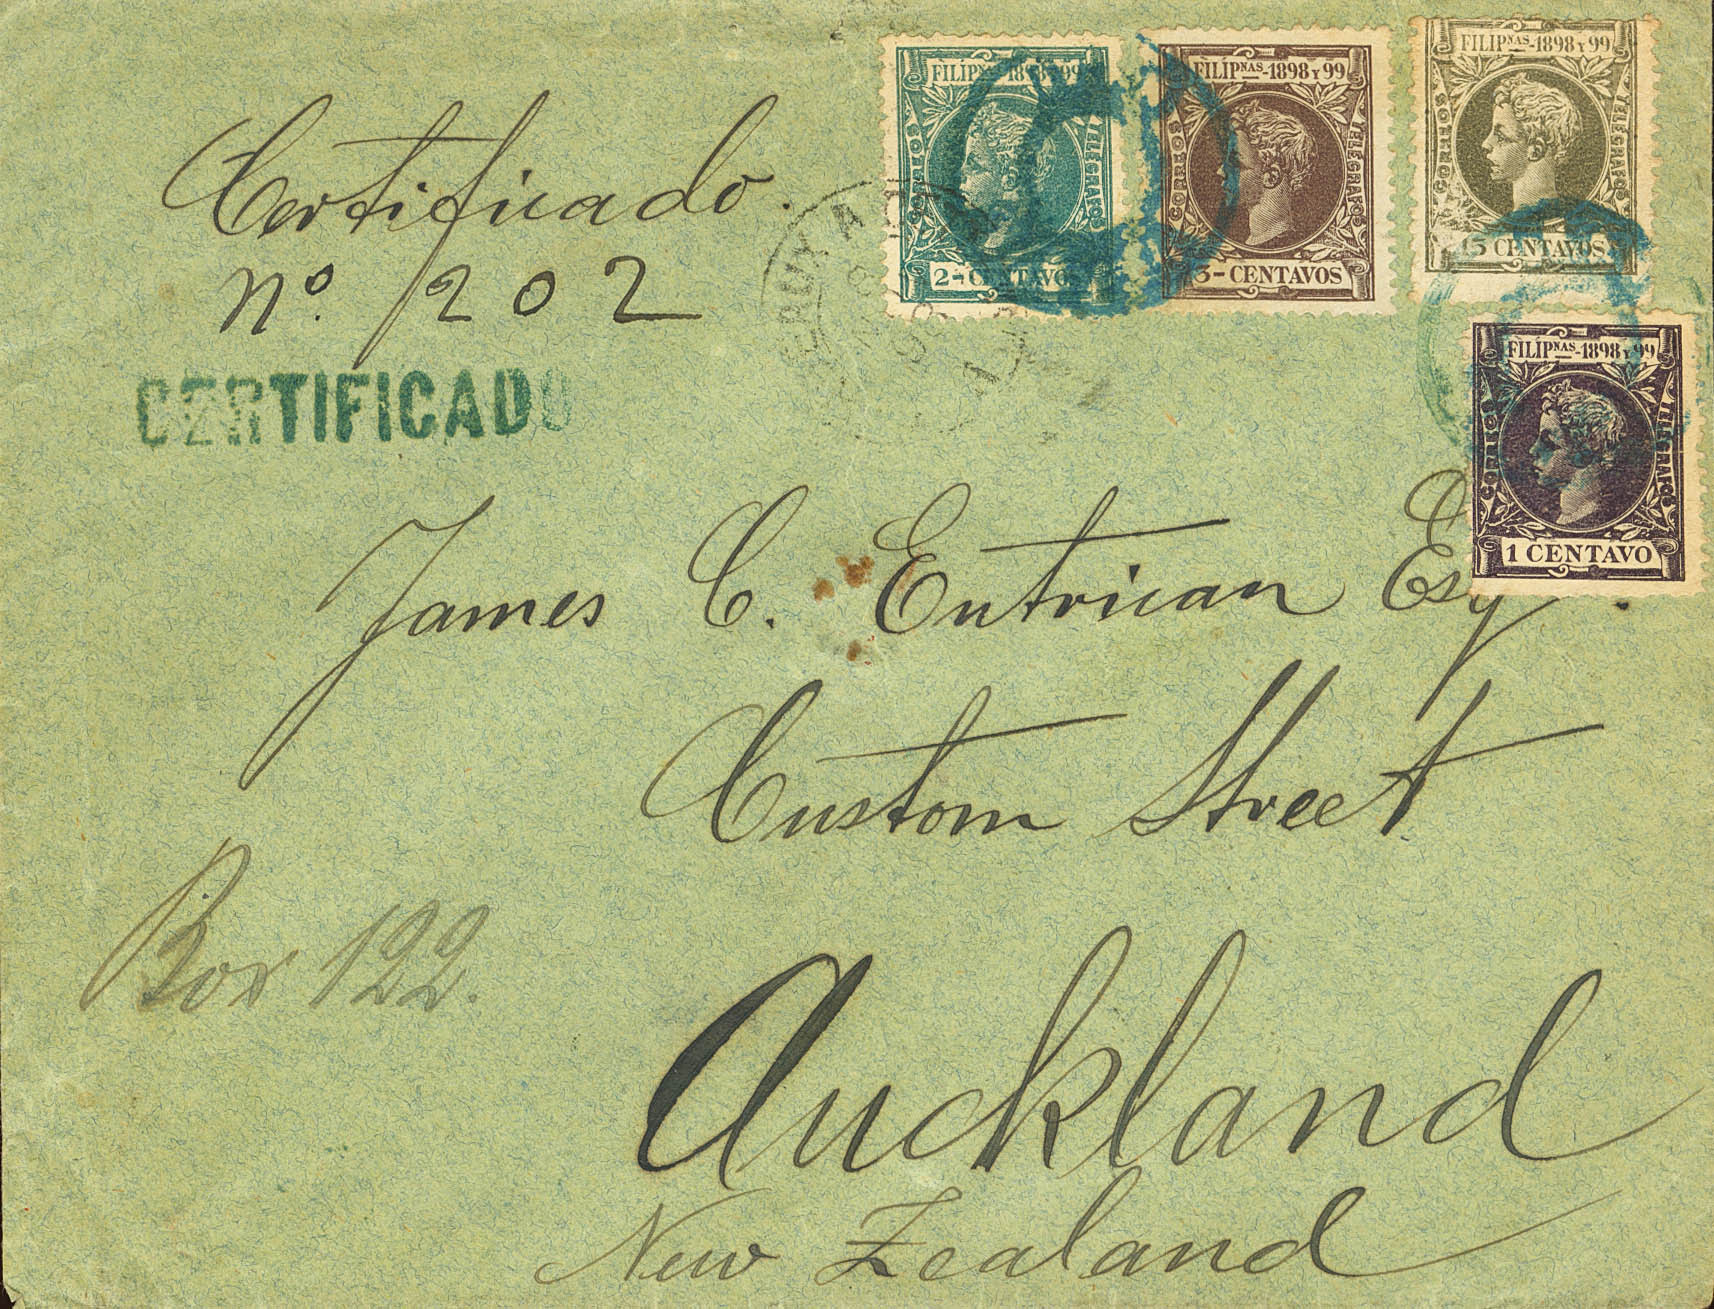 FILIPNAS-1898 Y 99
CORREOS
TELEGRAFOS
2-CENTAVO
FILIPNAS-1898 Y 99
CORREOS
TELEGRAFOS
3-CENTAVOS
FILIPNAS-1898 Y 99
CORREOS
TELEGRAFOS
15 CENTAVOS
FILIPNAS-1898 Y 99
CORREOS
TELEGRAFOS
1 CENTAVO
Certificado.
No. 202
CERTIFICADO
James C. Entrican Esq.
Custom Street
Box 122.
Auckland
New Zealand